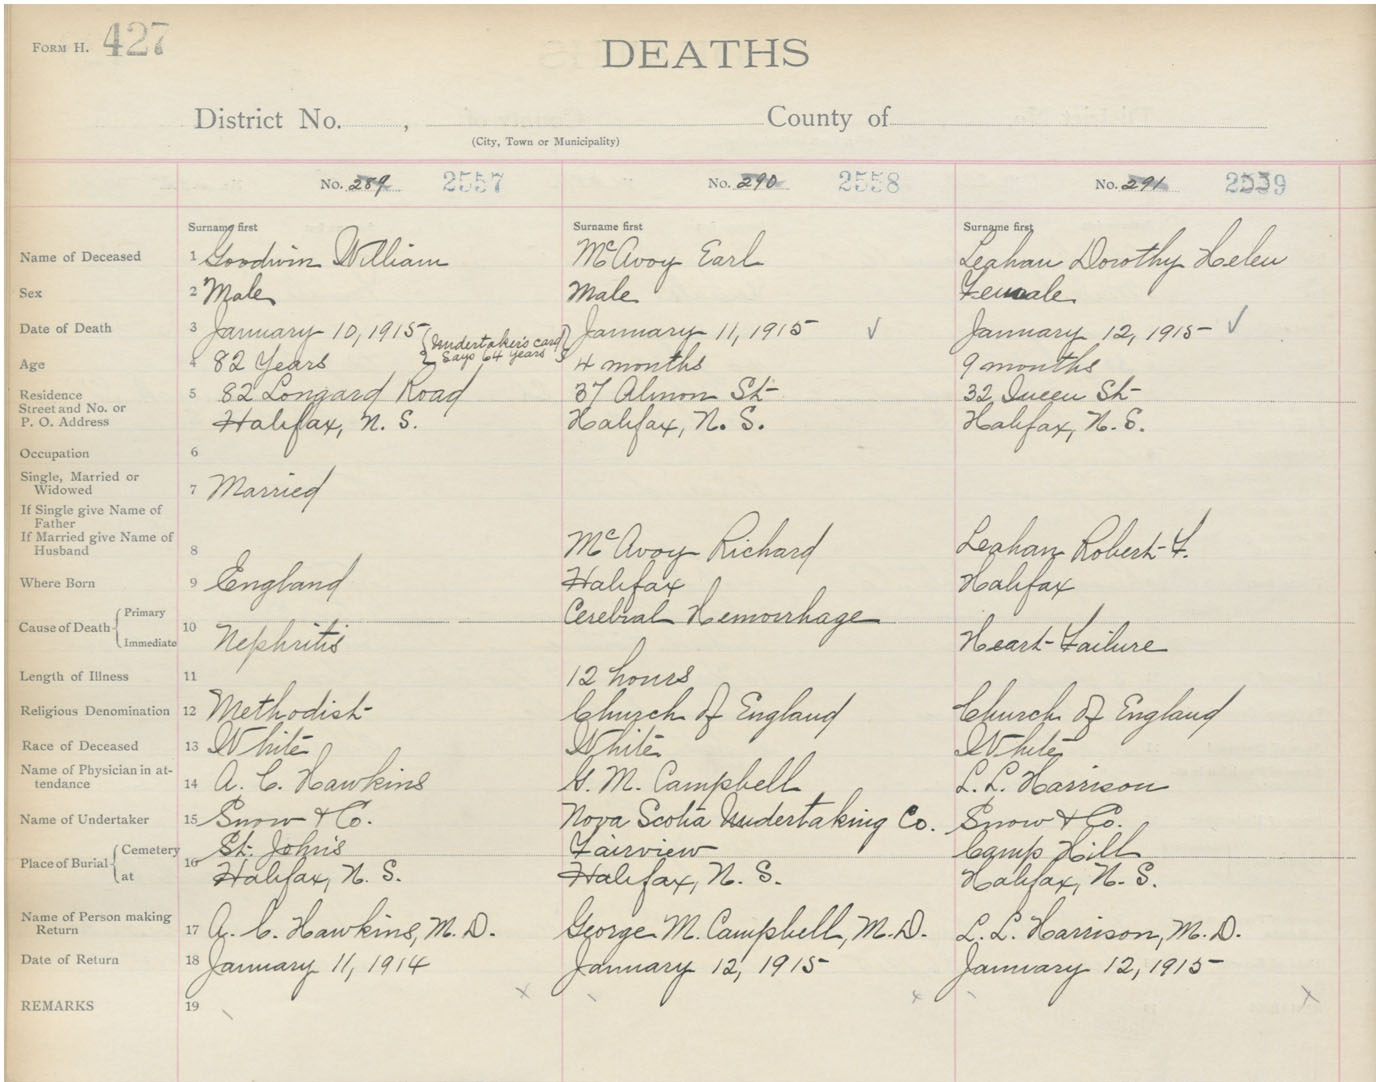 FORM H. 427
DEATHS
District No. , County of
(City, Town or Municipality)
No. 289 2557 No. 290 2558 No. 291 2559
Surname first Surname first Surname first
Name of Deceased 1 Goodwin William McAvoy Earl Leahan Dorothy Helen
Sex 2 Male Male Female
Date of Death 3 January 10, 1915 January 11, 1915 ✓ January 12, 1915 ✓
{Undertaker's card
Says 64 years}
Age 4 82 Years 4 months 9 months
Residence 5 82 Longard Road 37 Almon St 32 Queen St
Street and No. or
P. O. Address Halifax, N. S. Halifax, N. S. Halifax, N. S.
Occupation 6
Single, Married or
Widowed 7 Married
If Single give Name of
Father
If Married give Name of
Husband 8 McAvoy Richard Leahan Robert F.
Where Born 9 England Halifax Halifax
Cause of Death { Primary Cerebral Hemorrhage
10
Immediate Nephritis Heart Failure
Length of Illness 11 12 hours
Religious Denomination 12 Methodist Church of England Church of England
Race of Deceased 13 White White White
Name of Physician in at-
tendance 14 A. C. Hawkins G. M. Campbell L. L. Harrison
Name of Undertaker 15 Snow & Co. Nova Scotia Undertaking Co. Snow & Co.
Place of Burial { Cemetery 16 St. John's Fairview Camp Hill
at Halifax, N. S. Halifax, N. S. Halifax, N. S.
Name of Person making
Return 17 A. C. Hawkins, M. D. George M. Campbell, M. D. L. L. Harrison, M. D.
Date of Return 18 January 11, 1914 January 12, 1915 January 12, 1915
REMARKS 19